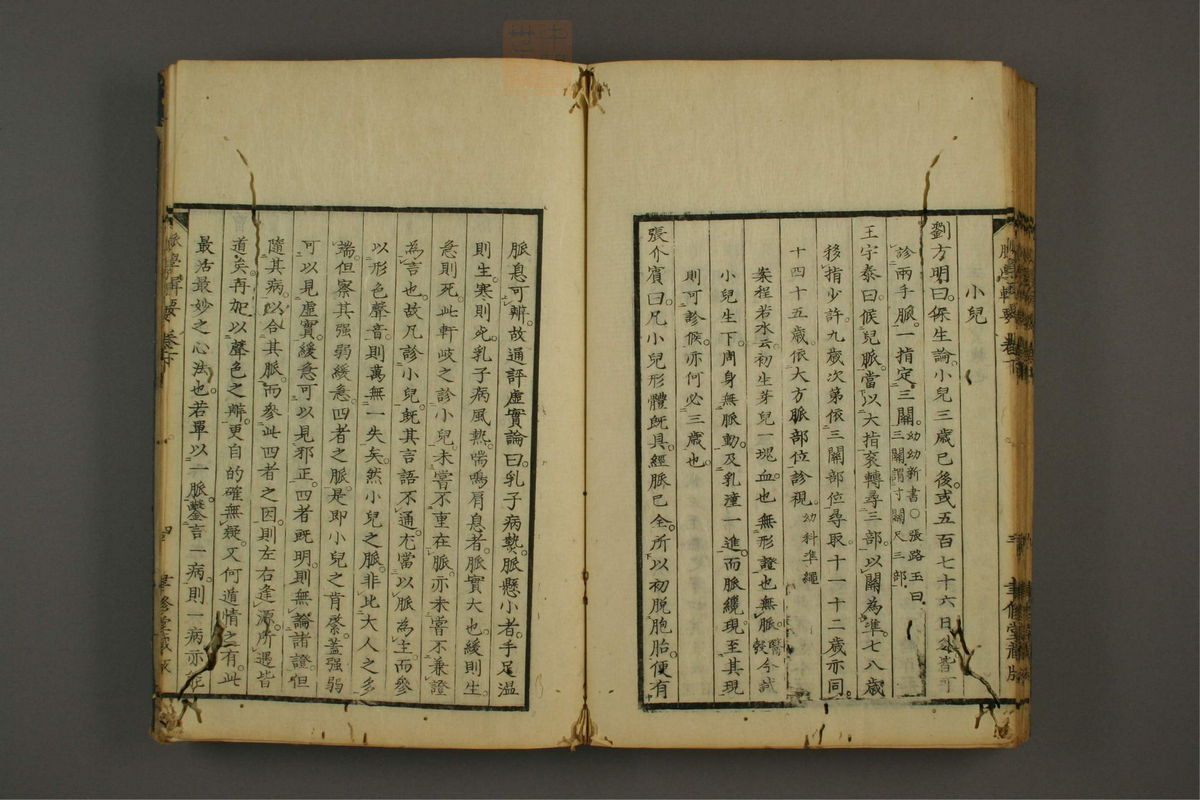 小兒
劉方明曰。保生論。小兒三歲已後。或五百七十六日外。皆可
診兩手脈。一指定三關。幼幼新書○張路玉曰
三關謂寸關尺三部
王宇泰曰。候兒脈。當以大指衮轉尋三部。以關為準。七八歲
移指少許。九歲次第依三關部位尋取。十一十二歲亦同。
十四十五歲。依大方脈部位診視。幼科準繩
案程若水云。初生芽兒一塊血也。無形證也。無脈。醫彀今試
小兒生下。周身無脈動。及乳湩一進。而脈纔現。至其現
則可診候。亦何必三歲也。
張介賓曰。凡小兒形體既具。經脈已全。所以初脫胞胎。便有
脈息可辨。故通評虛實論曰。乳子病熱。脈懸小者。手足溫
則生。寒則死。乳子病風熱。喘鳴肩息者。脈實大也。緩則生。
急則死。此軒岐之診小兒。未嘗不重在脈。亦未嘗不兼證
為言也。故凡診小兒。既其言語不通。尤當以脈為主。而參
以形色聲音。則萬無一失矣。然小兒之脈。非比大人之多
端。但察其强弱緩急。四者之脈。是即小兒之肯綮。蓋强弱
可以見虛實。緩急可以見邪正。四者既明。則無論諸證。但
隨其病。以合其脈。而參此四者之因。則左右逢源。所遇皆
道矣。再加以聲色之辨。更自的確無疑。又何遁情之有。此
最活最妙之心法也。若單以一脈。鑿言一病。則一病亦
脈學輯要 卷下
四
聿修堂藏版